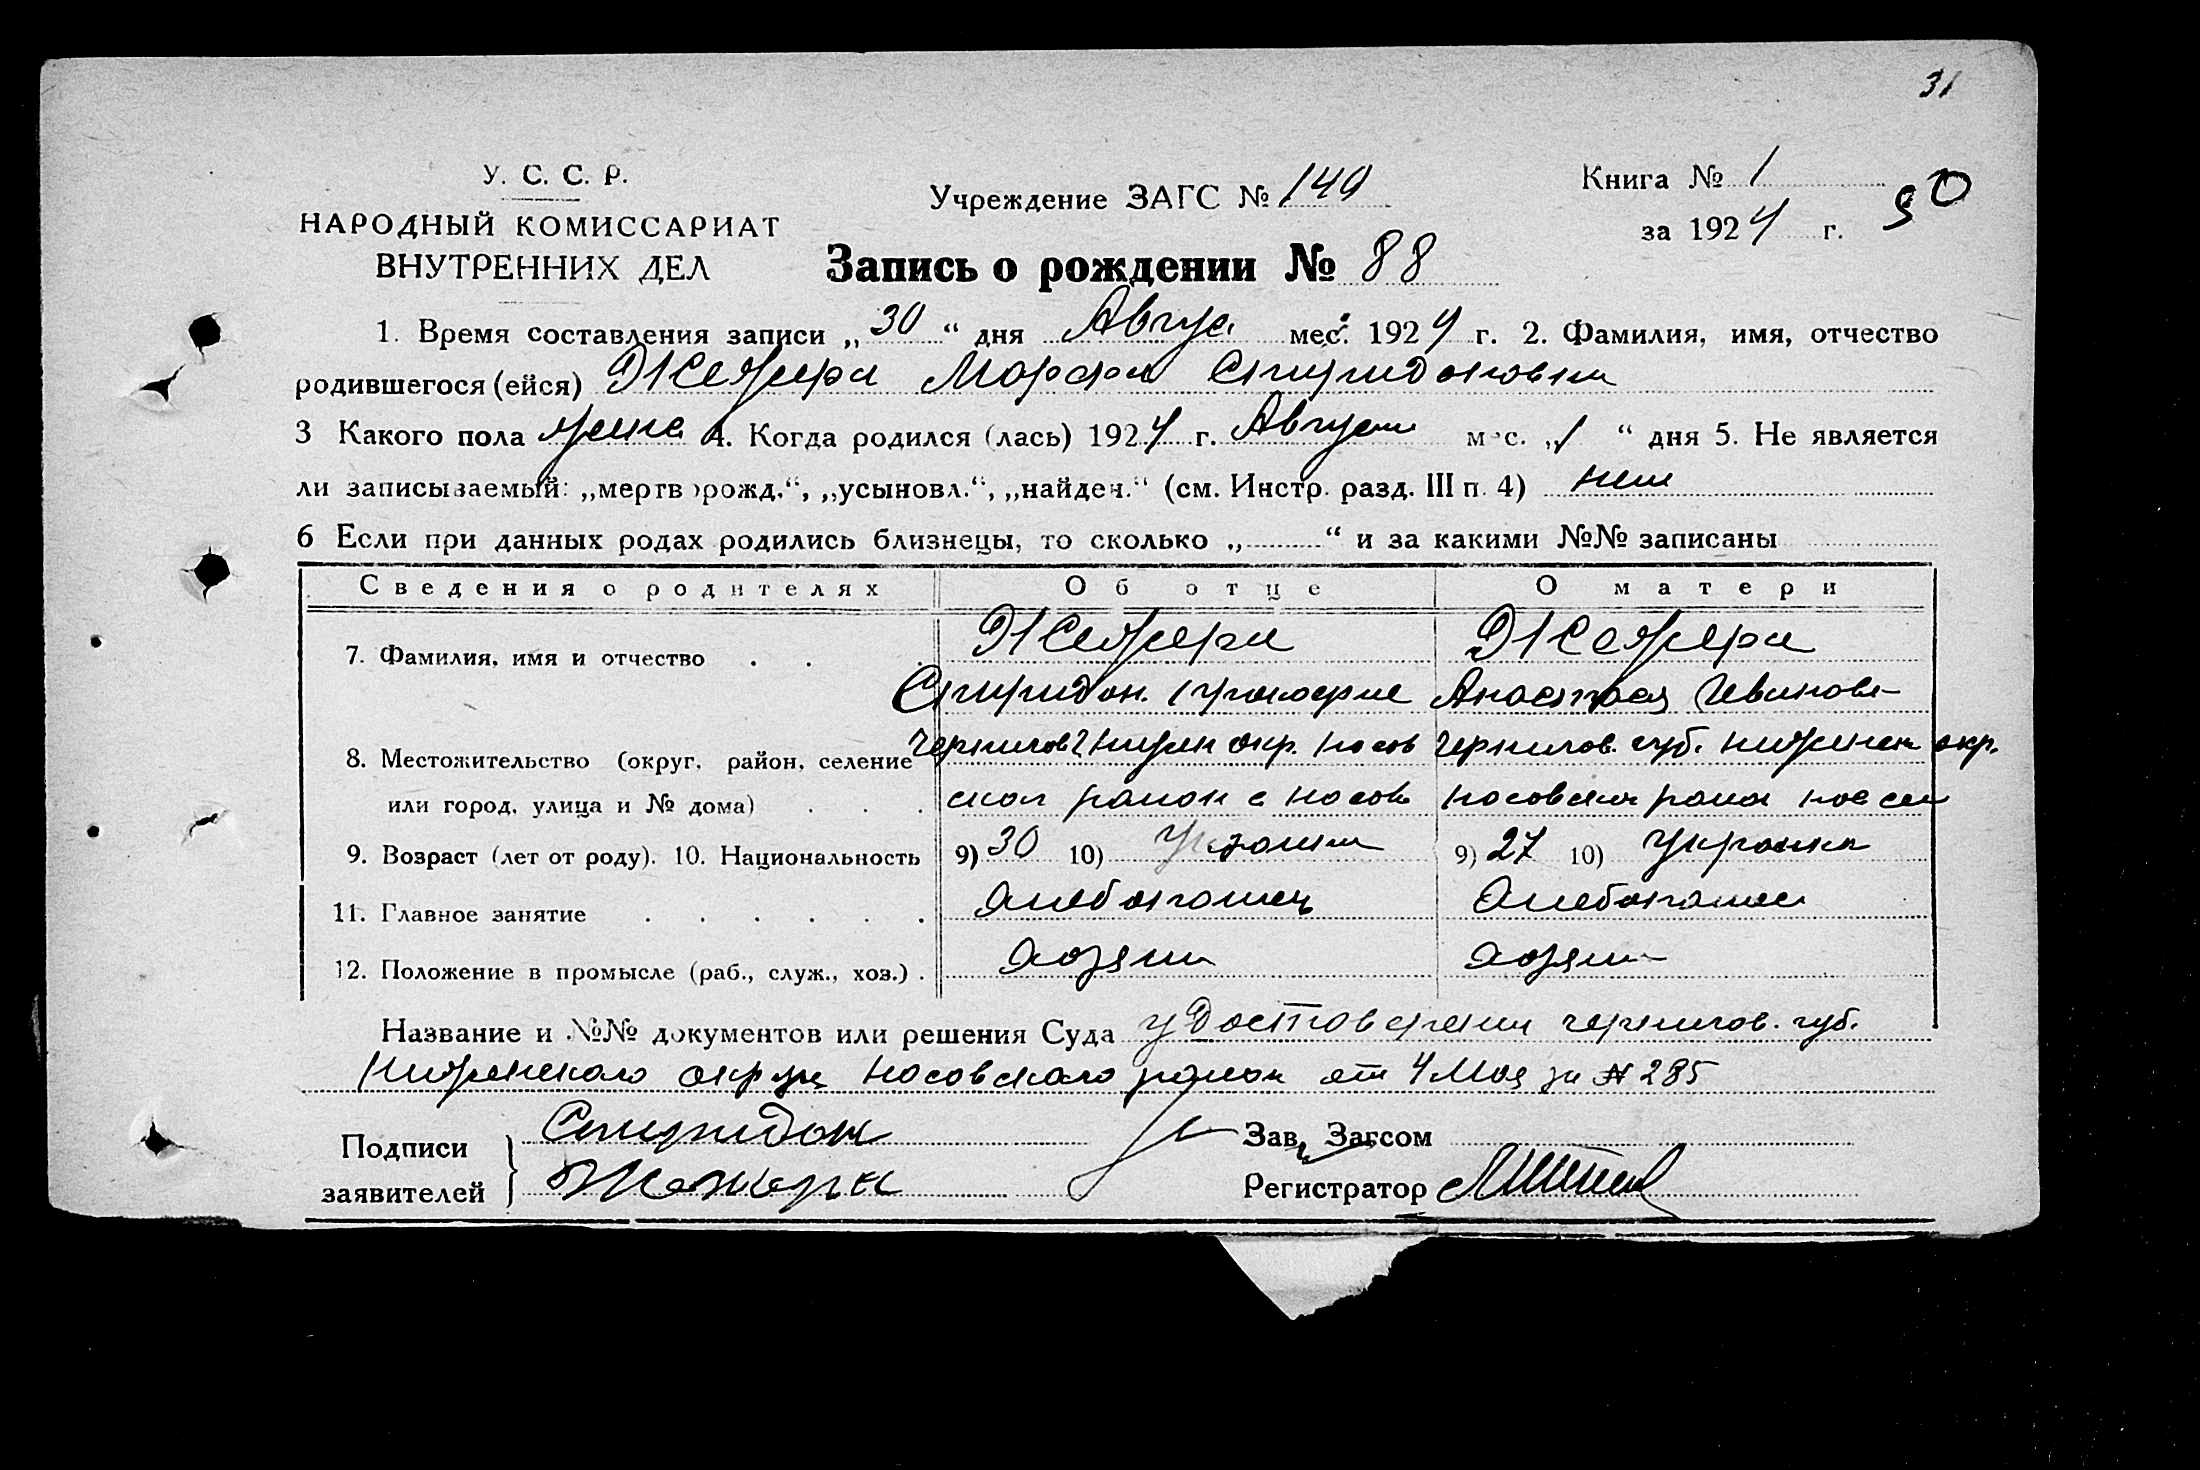 31
У. С. С. Р.
НАРОДНЫЙ КОМИССАРИАТ
ВНУТРЕННИХ ДЕЛ
Учреждение ЗАГС № 149
Книга № 1
за 1924 г. 90
Запись о рождении № 88
1. Время составления записи „30“ дня Авгус мес. 1924 г. 2. Фамилия, имя, отчество
родившегося (ейся) Марфа Спиридоновна
3 Какого пола женс 4. Когда родился (лась) 1924 г. Август мес. „1“ дня 5. Не является
ли записываемый: „мертворожд.“, „усыновл.“, „найден.“ (см. Инстр. разд. III п. 4) нет
6 Если при данных родах родились близнецы, то сколько „......“ и за какими №№ записаны
Сведения о родителях Об отце О матери
7. Фамилия, имя и отчество . . .
Спиридон Анастасия Иванов
8. Местожительство (округ, район, селение Чернигов окр. Носов Чернигов. губ. Нежинск окр.
или город, улица и № дома) . . . ской район с Носов Носовский район
9. Возраст (лет от роду). 10. Национальность 9) 30 10) 9) 27 10) Украинка
11. Главное занятие . . . . . . Хлебопашец Хлебопашец
12. Положение в промысле (раб., служ., хоз.) . Хозяин Хозяин
Название и №№ документов или решения Суда удостоверении чернигов. губ.
Нежинского округа Носовского район от 4 Мая за № 285
Подписи
заявителей
Спиридон
Зав. Загсом
Регистратор